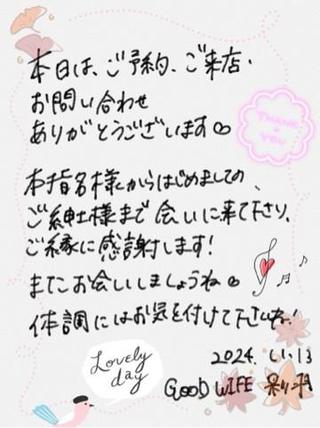 本日は、ご予約、ご来店・
お問い合わせ
ありがとうございます
THANK YOU
本指名様からはじめましての、
ご紳士様まで会いに来て下さり、
ご縁に感謝します!
またお会いしましょうね
体調にはお気を付けて下さいね!
2024. 11.13
Lovely day
GOOD WIFE